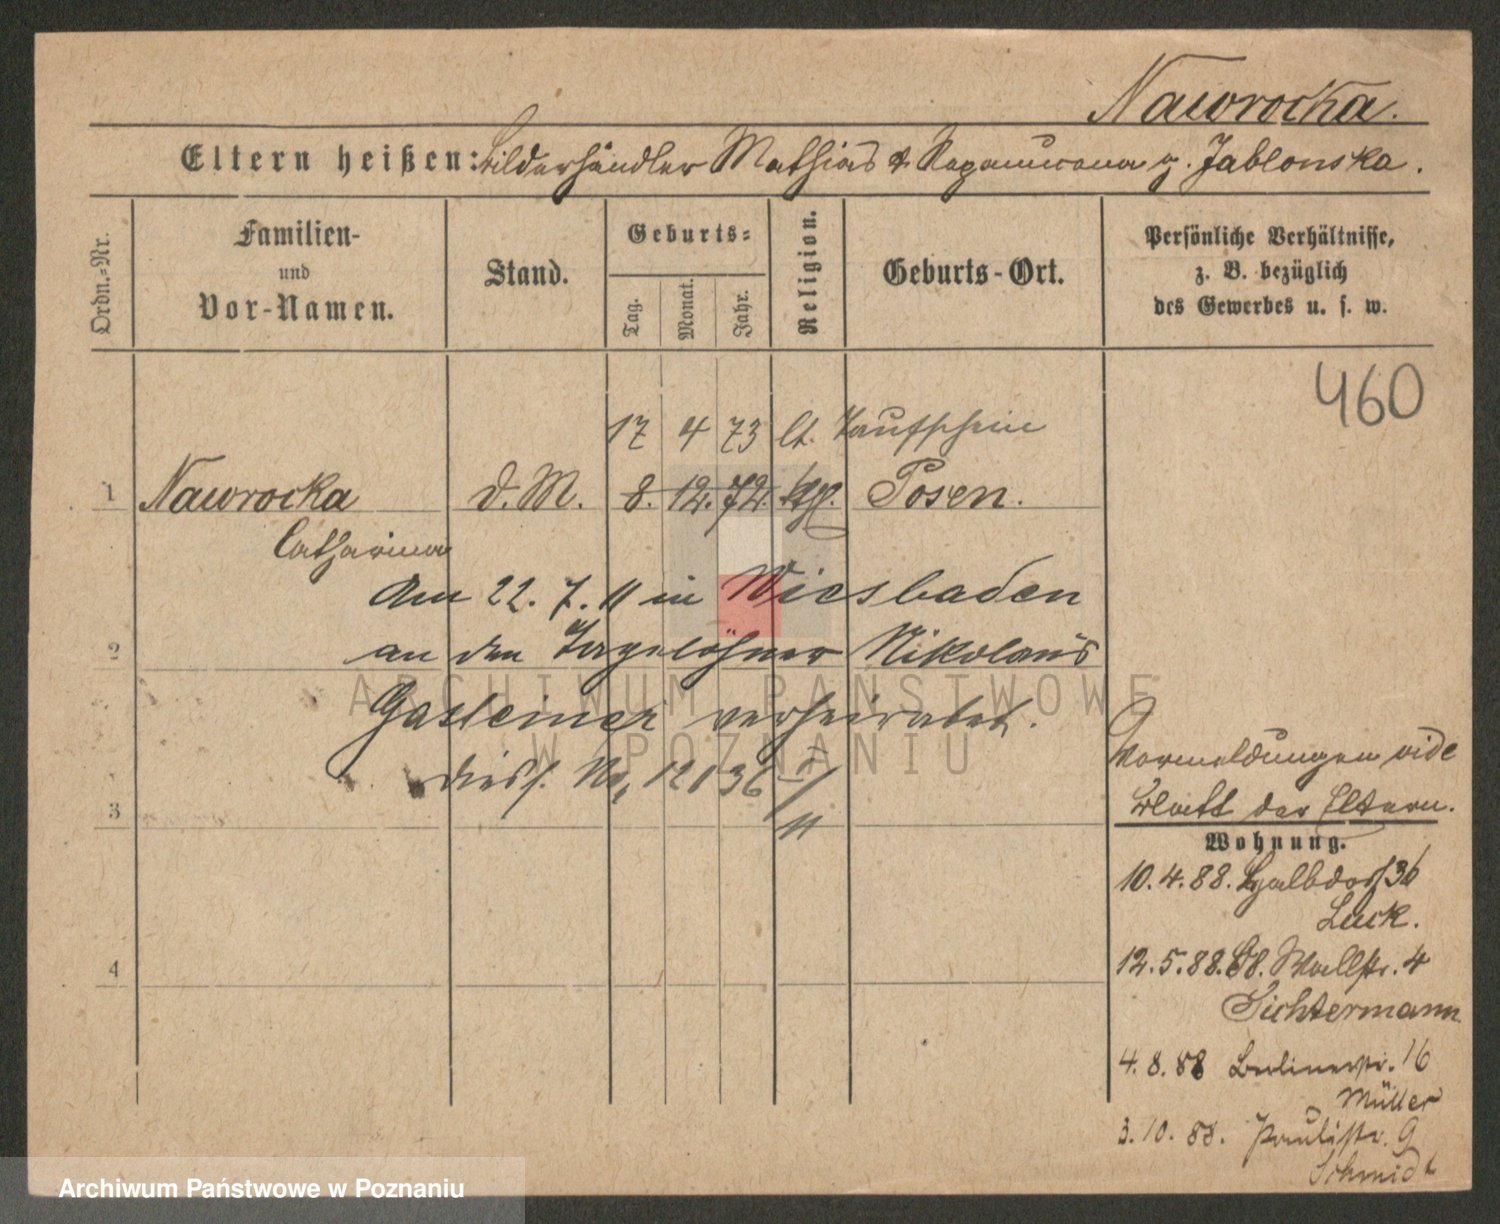 Nawrocka.
Eltern heißen: Bilderhändler Mathias & g. Jablonska.
Ordn.-Nr.
Familien-
und
Vor-Namen.
Stand.
Geburts-
Tag.
Monat.
Jahr.
Religion.
Geburts-Ort.
Persönliche Verhältnisse,
z. B. bezüglich
des Gewerbes u. s. w.
460
17 4 73 lt. Taufschein
1 Nawrocka d. M. 8. 12. 72. Posen.
Catharina
Am 22. 7. 11 in Wiesbaden
2 an den Tagelöhner Nikolaus
Gasteiner verheiratet.
diess. No. 12136
11
3
4
Vormeldungen vide
Blatt der Eltern.
Wohnung.
10. 4. 88. Halbdorf 36
Luck.
12. 5. 88. Wallstr. 4
Sichtermann
4. 8. 88 Berlinerstr. 16
Müller
3. 10. 88. Paulistr. 9
Schmidt
ARCHIWUM PAŃSTWOWE
W POZNANIU
Archiwum Państwowe w Poznaniu